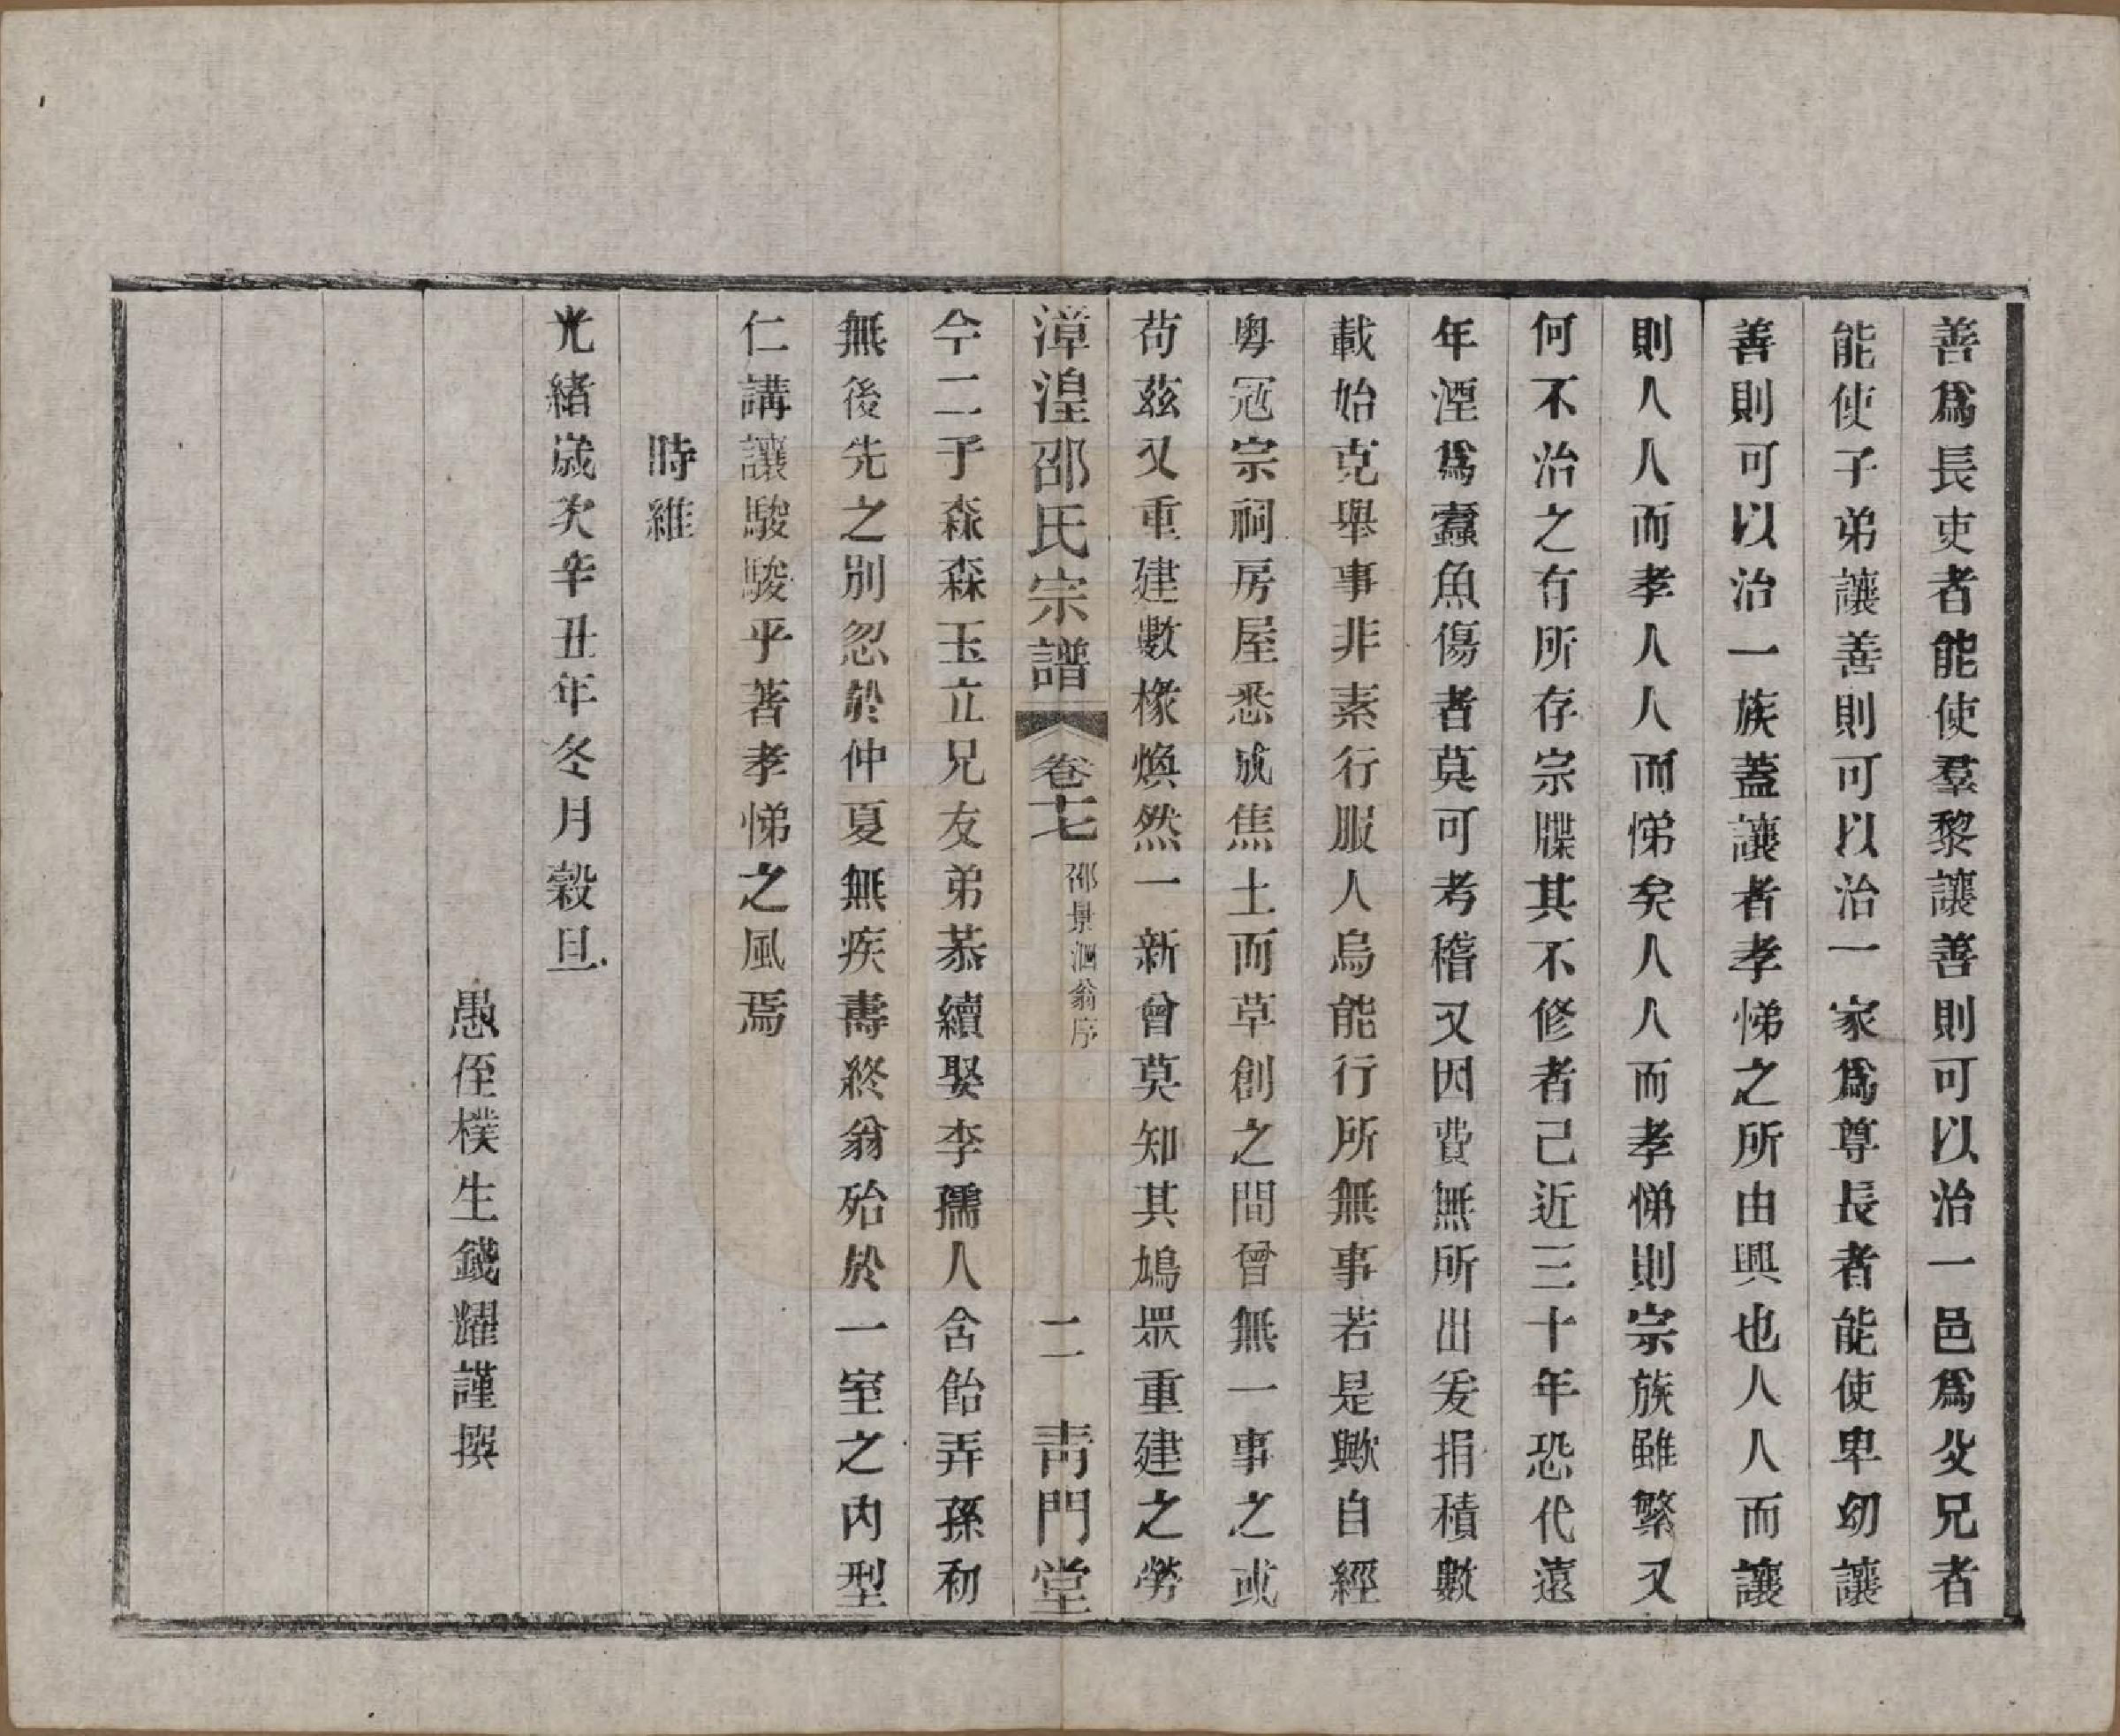 善爲長吏者能使羣黎讓善則可以治一邑爲父兄者
能使子弟讓善則可以治一家爲尊長者能使卑幼讓
善則可以治一族蓋讓者孝悌之所由興也人人而讓
則人人而孝人人而悌矣人人而孝悌則宗族雖繁又
何不治之有所存宗牒其不修者己近三十年恐代遠
年湮爲蠹魚傷者莫可考稽又因費無所出爰捐積數
載始克舉事非素行服人烏能行所無事若是歟自經
粤冦宗祠房屋悉成焦土而草創之間曾無一事之或
苟茲又重建數椽煥然一新曾莫知其鳩眾重建之勞
漳湟邵氏宗譜
卷七
邵景泗翁序
二
青門堂
今二子森森玉立兄友弟恭續娶李孺人含飴弄孫初
無後先之別忽於仲夏無疾壽終翁殆於一室之內型
仁講讓駸駸乎著孝悌之風焉
時維
光緒歲次辛丑年冬月穀旦
愚侄樸生錢耀謹撰